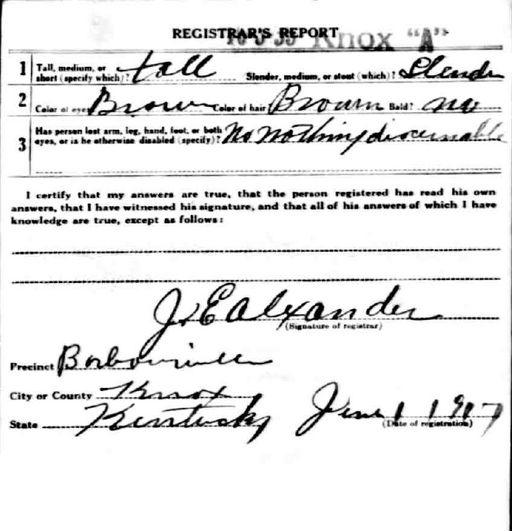 REGISTRAR'S REPORT
16-3-35 Knox "A"
1 Tall, medium, or short (specify which)? tall Slender, medium, or stout (which)? Slender
2 Color of eyes Brown Color of hair Brown Bald? no
3 Has person lost arm, leg, hand, foot, or both eyes, or is he otherwise disabled (specify)? No nothing discernable
I certify that my answers are true, that the person registered has read his own
answers, that I have witnessed his signature, and that all of his answers of which I have
knowledge are true, except as follows:
J. E Alxander
(Signature of registrar)
Precinct Borbourville
City or County Knox
State Kentucky June 1 1917
(Date of registration)